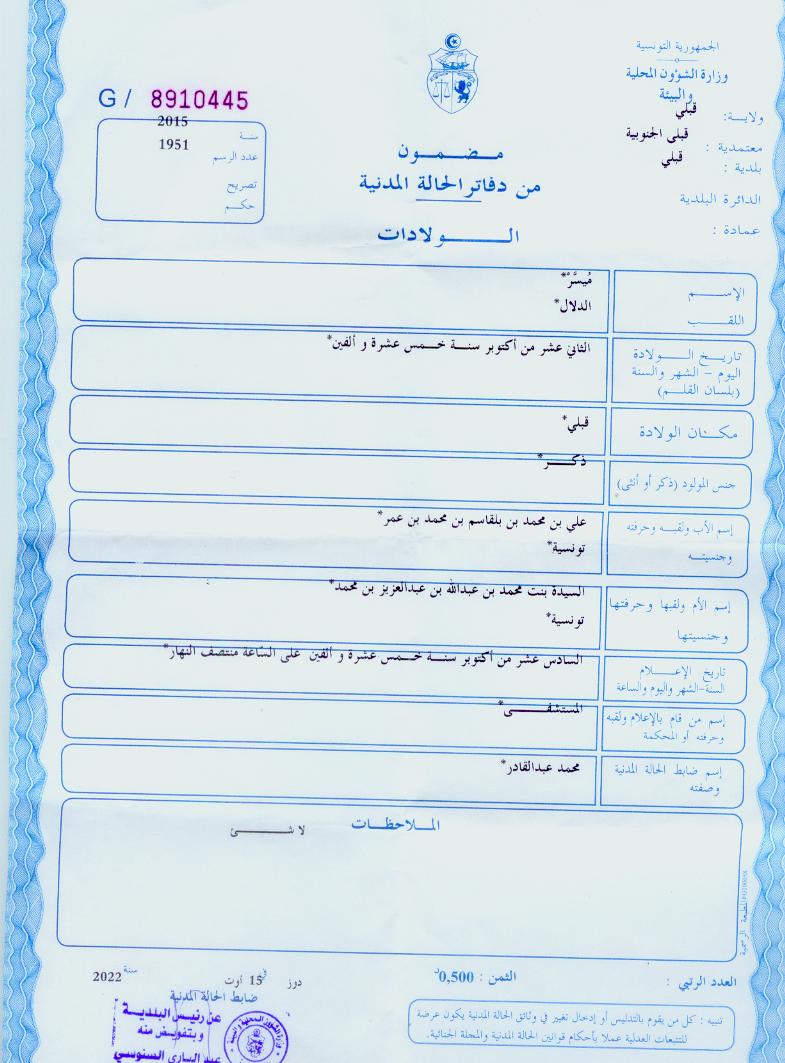 الجمهورية التونسية
وزارة الشؤون المحلية
والبيئة
ولاية: قبلي
معتمدية : قبلى الجنوبية
بلدية : قبلي
الدائرة البلدية
عمادة :
G / 8910445
سنة 2015
عدد الرسم 1951
تصريح
حكم
مضمون
من دفاتر الحالة المدنية
الولادات
الإسم مُيسَّرْ*
اللقب الدلال*
تاريخ الولادة
اليوم - الشهر والسنة
(بلسان القلم)
الثاني عشر من أكتوبر سنة خمس عشرة و ألفين*
مكان الولادة
قبلي*
جنس المولود (ذكر أو أنثى)
ذكر*
إسم الأب ولقبه وحرفته
وجنسيته
علي بن محمد بن بلقاسم بن محمد بن عمر*
تونسية*
إسم الأم ولقبها وحرفتها
وجنسيتها
السيدة بنت محمد بن عبدالله بن عبدالعزيز بن محمد*
تونسية*
تاريخ الإعلام
السنة-الشهر واليوم والساعة
السادس عشر من أكتوبر سنة خمس عشرة و ألفين على الساعة منتصف النهار*
إسم من قام بالإعلام ولقبه
وحرفته أو المحكمة
المستشفى*
إسم ضابط الحالة المدنية
وصفته
محمد عبدالقادر*
الملاحظات
لا شئ
المطبعة الرسمية
العدد الرتبي :
الثمن : 0,500د
دوز في 15 أوت سنة 2022
ضابط الحالة المدنية
عن رئيس البلدية
وبتفويض منه
عبد الباري السنوسي
تنبيه : كل من يقوم بالتدليس أو إدخال تغيير في وثائق الحالة المدنية يكون عرضة
للتتبعات العدلية عملا بأحكام قوانين الحالة المدنية والمجلة الجنائية.